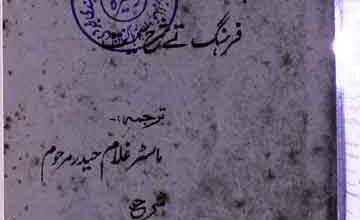 فرہنگ تے شرح
ترجمہ:-
ماسٹر غلام حیدر مرحوم
شرح